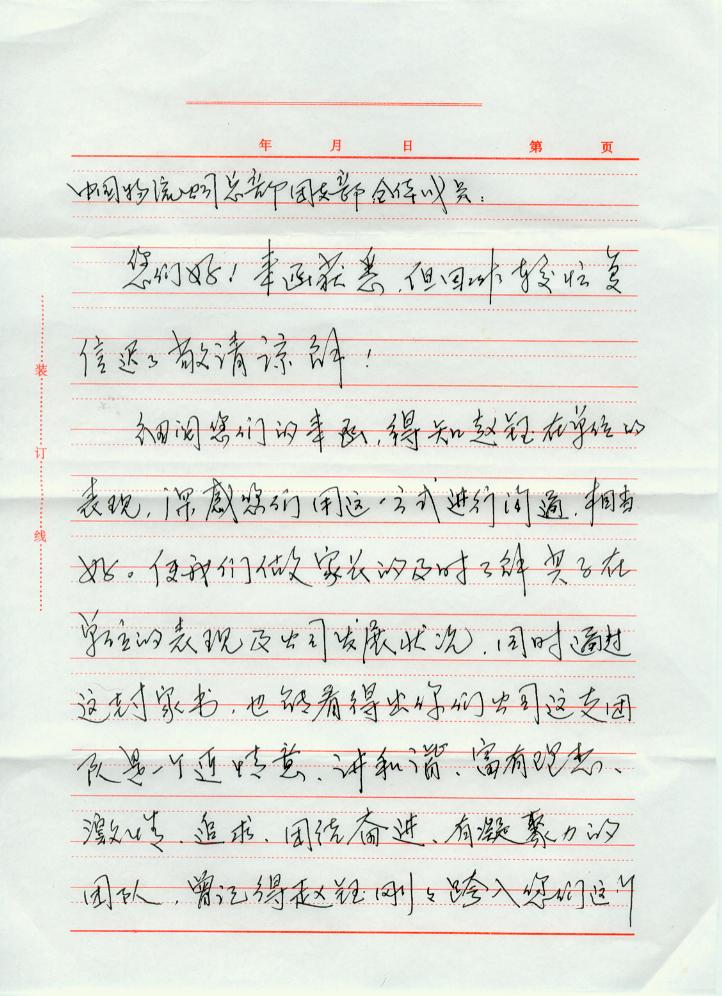 年 月 日 第 页
中国物流公司总部团支部全体成员：
您们好！来函获悉，但因工作较忙复
信迟了敬请谅解！
细阅您们的来函，得知赵钰在单位的
表现，深感您们用这一方式进行沟通，相当
好。使我们做父家长的及时了解其子在
单位的表现及公司发展状况，同时通过
这封家书，也能看得出你们公司这支团
队是一个近情意、讲和谐、富有理想、
激情、追求、团结奋进、有凝聚力的
团队，曾记得赵钰刚刚跨入您们这个
装
订
线